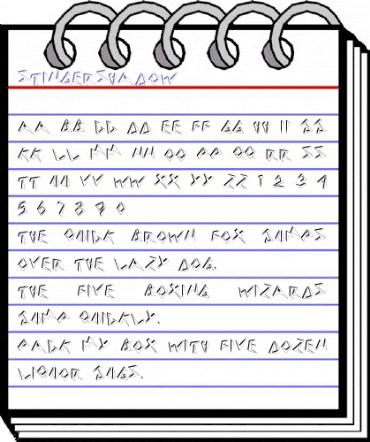 STINGERSHADOW
AA BB CC DD EE FF GG HH II JJ
KK LL MM NN OO PP QQ RR SS
TT UU VV WW XX YY ZZ 1 2 3 4
5 6 7 8 9 0
THE QUICK BROWN FOX JUMPS
OVER THE LAZY DOG.
THE FIVE BOXING WIZARDS
JUMP QUICKLY.
PACK MY BOX WITH FIVE DOZEN
LIQUOR JUGS.